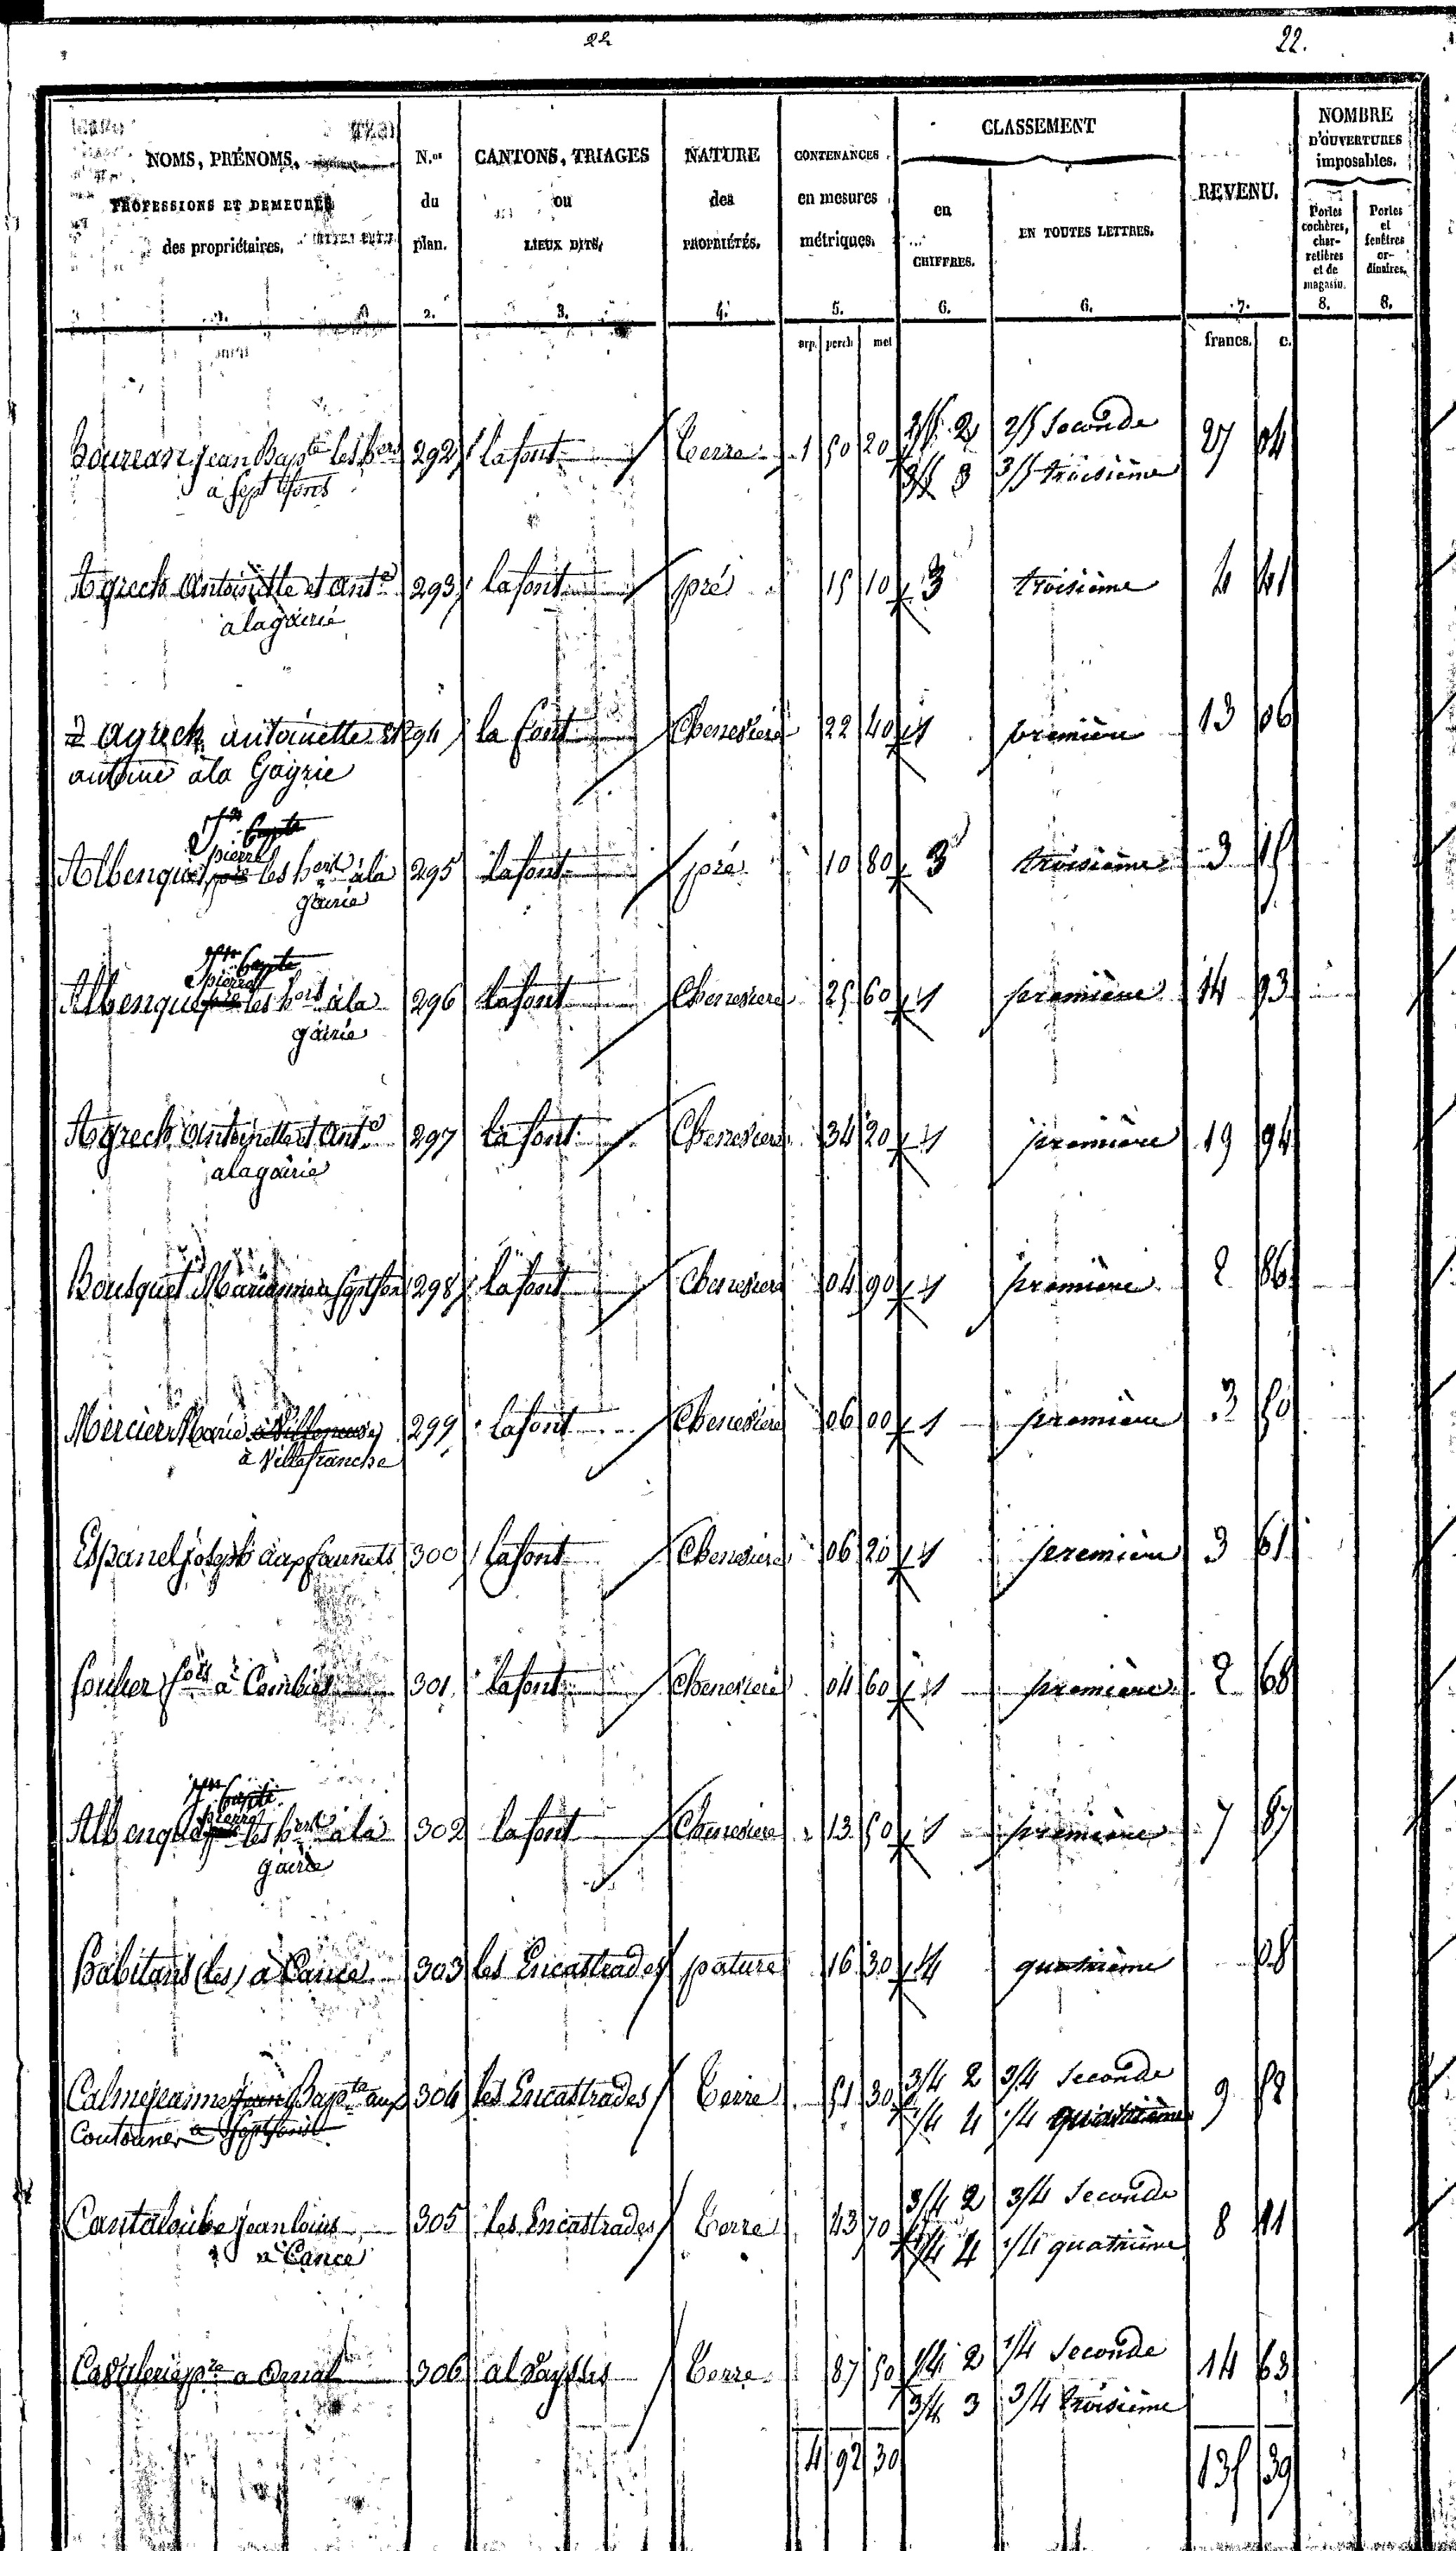 22
22.
NOMS, PRÉNOMS,
PROFESSIONS ET DEMEURES
des propriétaires.
N.os
du
plan.
2.
CANTONS, TRIAGES
ou
LIEUX DITS,
3.
NATURE
des
PROPRIÉTÉS.
4.
CONTENANCES
en mesures
métriques.
5.
arp. perch met
CLASSEMENT
en
CHIFFRES.
6.
EN TOUTES LETTRES.
6.
REVENU.
7.
francs. c.
NOMBRE
D'OUVERTURES
imposables.
Portes
cochères,
char-
retières
et de
magasin.
8.
Portes
et
fenêtres
or-
dinaires.
8.
jean Bapte les hers 292 lafont Terre 1 50 20 2/5 2 2/5 Seconde 27 04
à Septfonts 3/5 3 3/5 troisième
Agrech Antoinette et Ante 293 lafont pré 15 10 3 troisième 4 41
a lagairie
2 agrech antoinette et 294 la font Cheneviere 22 40 1 première 13 06
antoine à la Gayrie
Jn Bapte
pierre
Albenque les hers à la 295 lafont pré 10 80 3 troisième 3 15
gairie
Jn Bapte
pierre
Albenque les hers à la 296 lafont Cheneviere 25 60 1 première 14 93
gairie
Agrech Antoinette et Ante 297 la font Cheneviere 34 20 1 première 19 94
a lagairie
Bousquet Marianne a Septfons 298 lafont Cheneviere 04 90 1 première 2 86
Mercier Marie 299 lafont Cheneviere 06 00 1 première 3 50
à Villefranche
Espanel joseph aux faurnets 300 lafont Cheneviere 06 20 1 première 3 61
foulier fois à 301 lafont Cheneviere 04 60 1 première 2 68
Jn Bapte
pierre
Albenque les hers à la 302 lafont Cheneviere 13 50 1 première 7 87
gairie
habitans (les) à Cance 303 les Encastrades pature 16 30 4 quatrième 08
Calmejeanne Bapte aux 304 les Encastrades Terre 51 30 3/4 2 3/4 Seconde 9 52
Coutouner a Septfons 1/4 4 1/4 quatrième
Cantaloube jean louis 305 les Encastrades Terre 43 70 3/4 2 3/4 Seconde 8 11
a Cance 1/4 4 1/4 quatrième
pre a 306 al Terre 87 50 1/4 2 1/4 Seconde 14 63
3/4 3 3/4 troisième
4 92 30 135 39